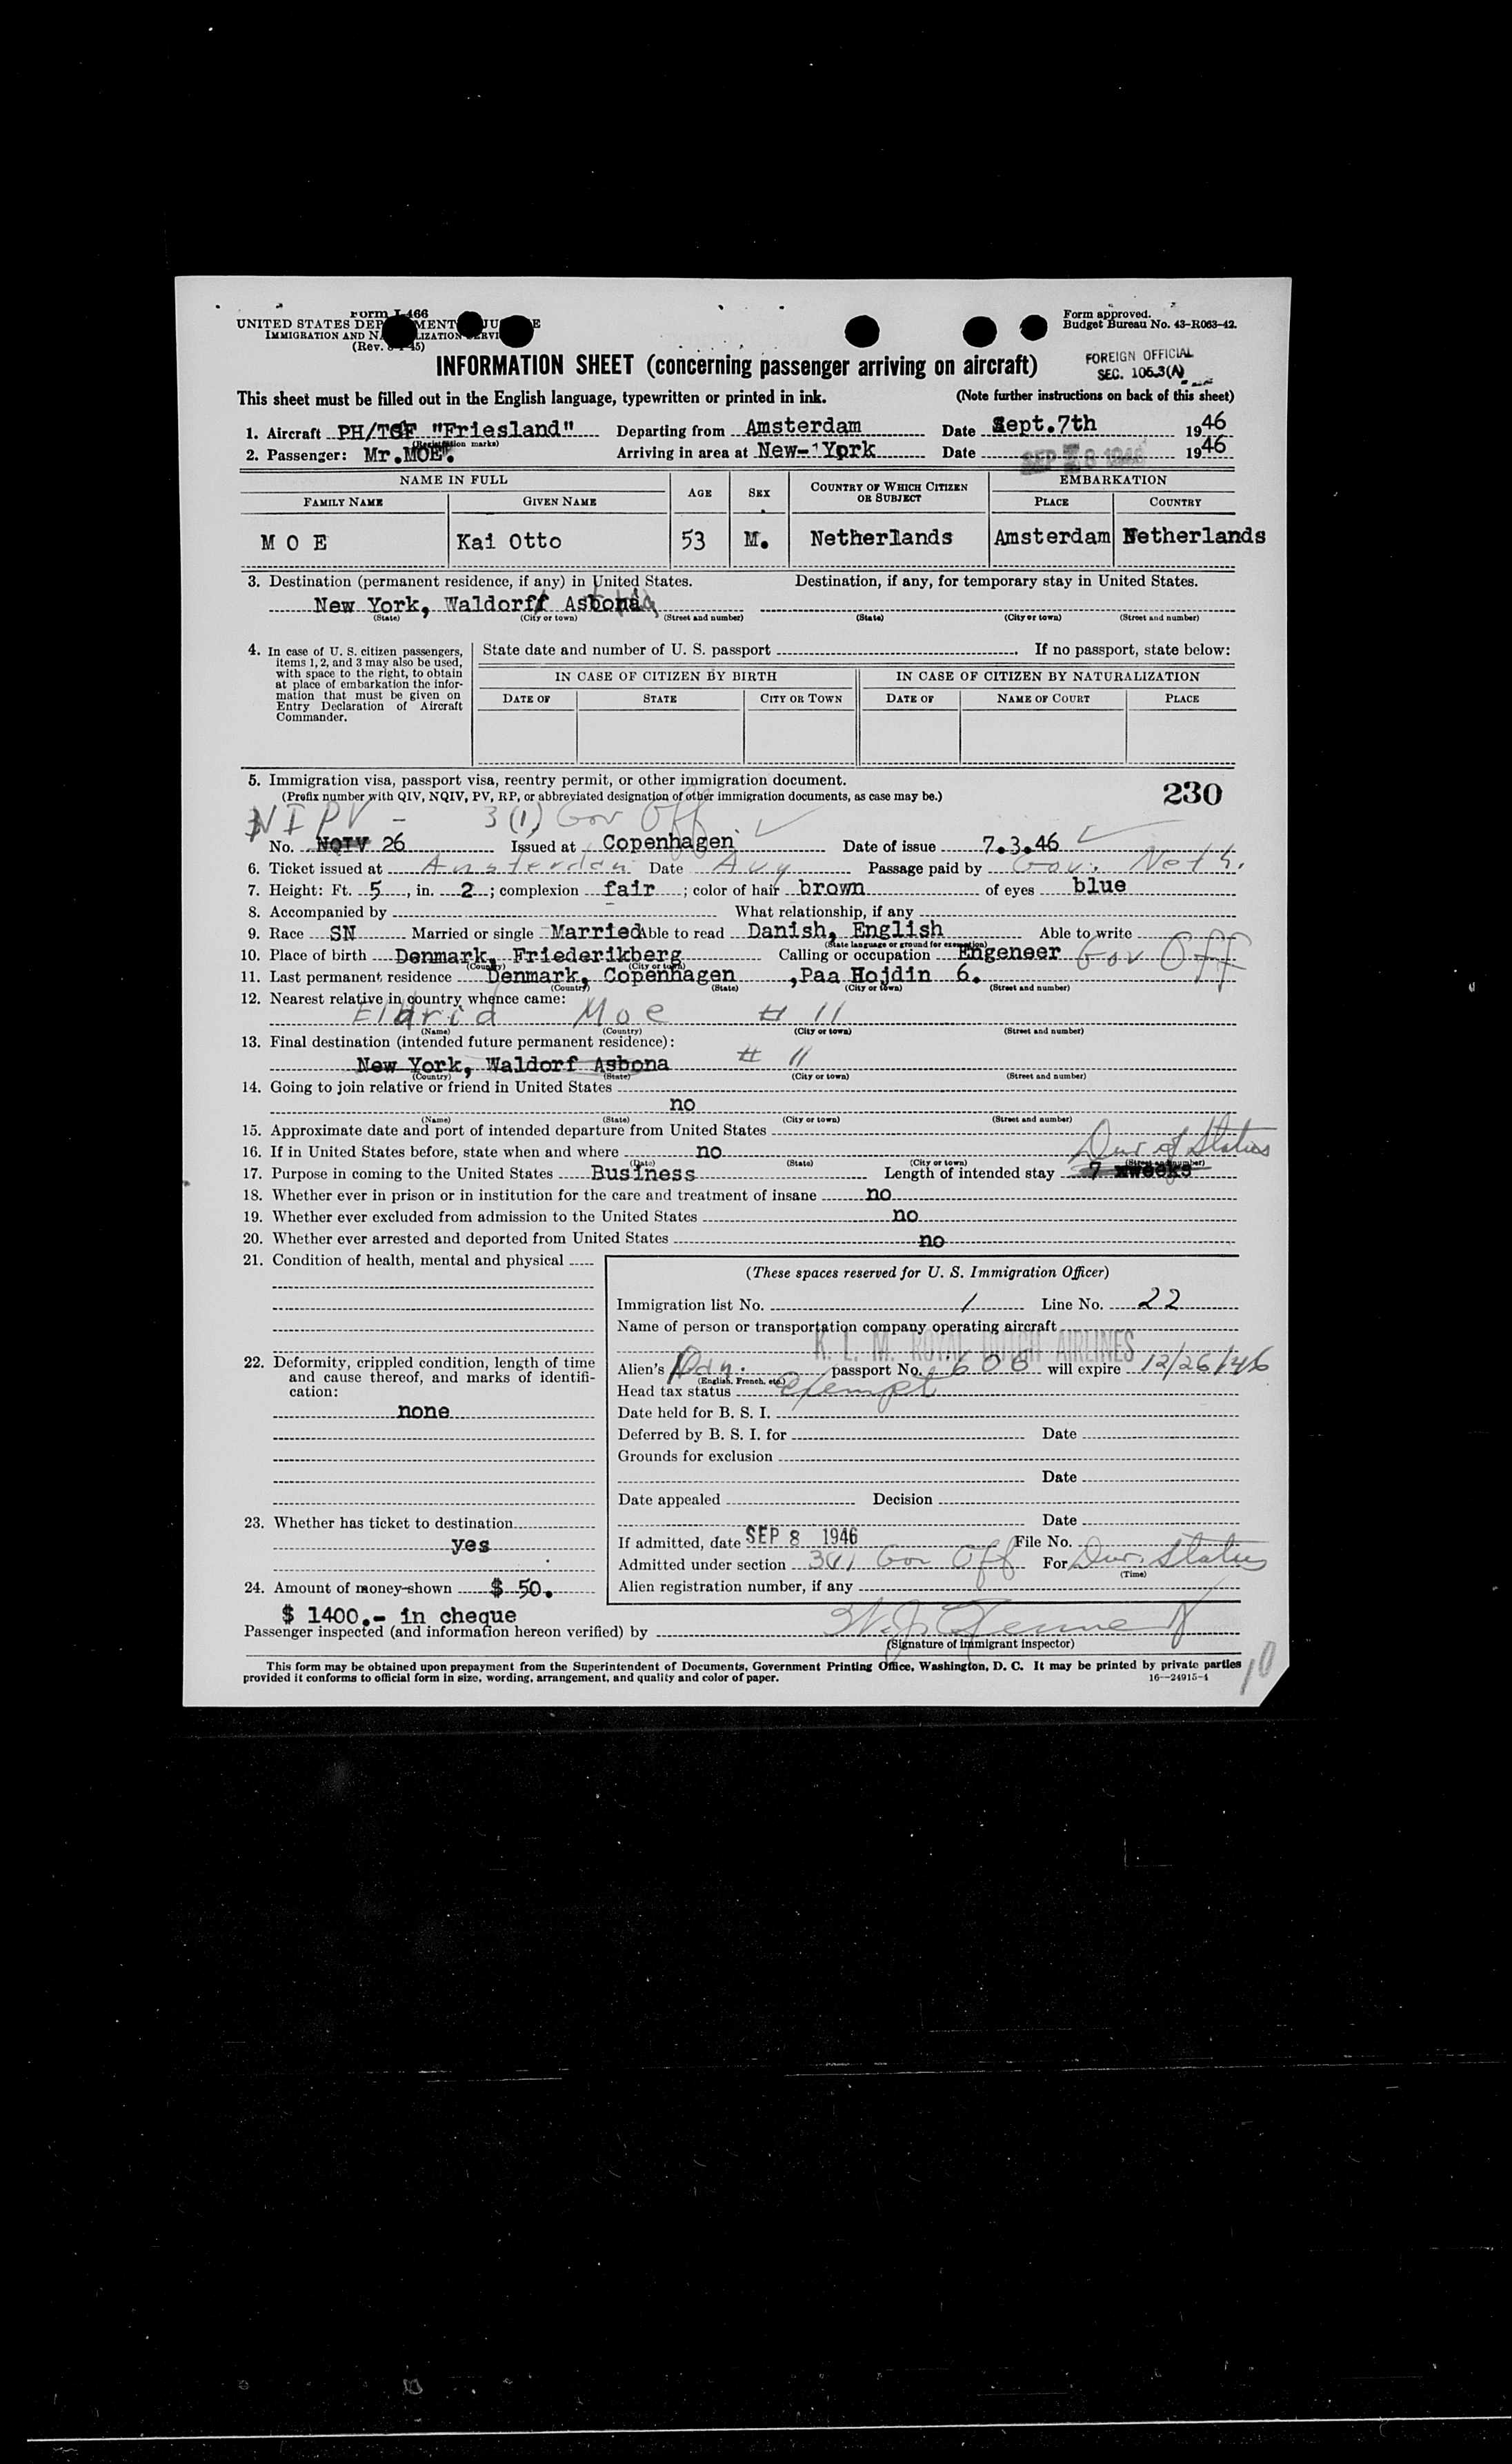 Form I-466
UNITED STATES DEP MENT JU E
IMMIGRATION AND NA LIZATION SERVI
(Rev. 45)
Form approved.
Budget Bureau No. 43-R063-42.
INFORMATION SHEET (concerning passenger arriving on aircraft)
FOREIGN OFFICIAL
SEC. 105.3(A)
This sheet must be filled out in the English language, typewritten or printed in ink. (Note further instructions on back of this sheet)
1. Aircraft PH/TSF "Friesland" Departing from Amsterdam Date Sept.7th 1946
(Registration marks)
2. Passenger: Mr.MOE. Arriving in area at New-York Date SEP 8 1946 1946
NAME IN FULL AGE SEX COUNTRY OF WHICH CITIZEN OR SUBJECT EMBARKATION
FAMILY NAME GIVEN NAME PLACE COUNTRY
M O E Kai Otto 53 M. Netherlands Amsterdam Netherlands
3. Destination (permanent residence, if any) in United States. Destination, if any, for temporary stay in United States.
New York, Waldorff Asbona
(State) (City or town) (Street and number) (State) (City or town) (Street and number)
4. In case of U. S. citizen passengers, items 1, 2, and 3 may also be used, with space to the right, to obtain at place of embarkation the information that must be given on Entry Declaration of Aircraft Commander.
State date and number of U. S. passport If no passport, state below:
IN CASE OF CITIZEN BY BIRTH IN CASE OF CITIZEN BY NATURALIZATION
DATE OF STATE CITY OR TOWN DATE OF NAME OF COURT PLACE
5. Immigration visa, passport visa, reentry permit, or other immigration document.
(Prefix number with QIV, NQIV, PV, RP, or abbreviated designation of other immigration documents, as case may be.)
230
NIPV - 3(1) Gov Off
No. NQIV 26 Issued at Copenhagen Date of issue 7.3.46
6. Ticket issued at Amsterdam Date Aug Passage paid by Gov. Neth.
7. Height: Ft. 5, in. 2; complexion fair; color of hair brown of eyes blue
8. Accompanied by What relationship, if any
9. Race SN Married or single Married Able to read Danish, English Able to write
(State language or ground for exemption)
10. Place of birth Denmark, Friederikberg Calling or occupation Engeneer Gov Off
(Country) (City or town)
11. Last permanent residence Denmark, Copenhagen ,Paa Hojdin 6.
(Country) (State) (City or town) (Street and number)
12. Nearest relative in country whence came:
Moe # 11
(Name) (Country) (City or town) (Street and number)
13. Final destination (intended future permanent residence):
New York, Waldorf Asbona # 11
(Country) (State) (City or town) (Street and number)
14. Going to join relative or friend in United States
no
(Name) (State) (City or town) (Street and number)
15. Approximate date and port of intended departure from United States
16. If in United States before, state when and where no Dur of Status
(Date) (State) (City or town) (Street and number)
17. Purpose in coming to the United States Business Length of intended stay 7 weeks
18. Whether ever in prison or in institution for the care and treatment of insane no
19. Whether ever excluded from admission to the United States no
20. Whether ever arrested and deported from United States no
21. Condition of health, mental and physical
22. Deformity, crippled condition, length of time and cause thereof, and marks of identification:
none
23. Whether has ticket to destination
yes
24. Amount of money shown $ 50.
$ 1400.- in cheque
(These spaces reserved for U. S. Immigration Officer)
Immigration list No. 1 Line No. 22
Name of person or transportation company operating aircraft
K. L. M. ROYAL DUTCH AIRLINES
Alien's passport No. 606 will expire 12/26/46
(English, French, etc.)
Head tax status Exempt
Date held for B. S. I.
Deferred by B. S. I. for Date
Grounds for exclusion
Date
Date appealed Decision
Date
If admitted, date SEP 8 1946 File No.
Admitted under section 3(1) Gov Off For Dur. Status
(Time)
Alien registration number, if any
Passenger inspected (and information hereon verified) by
(Signature of immigrant inspector)
This form may be obtained upon prepayment from the Superintendent of Documents, Government Printing Office, Washington, D. C. It may be printed by private parties
provided it conforms to official form in size, wording, arrangement, and quality and color of paper. 16—24915-1
10